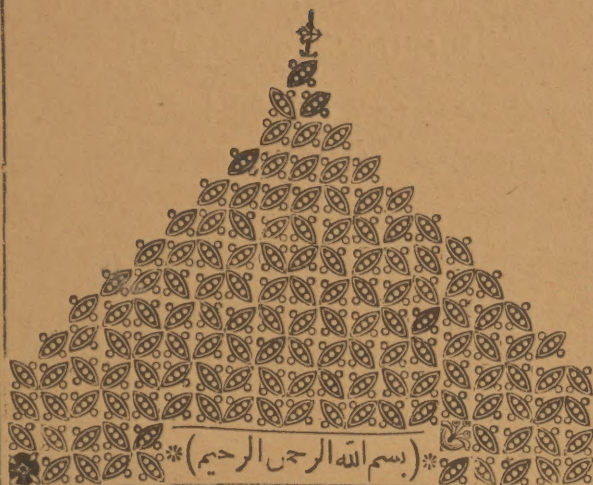 *(بسم الله الرحمن الرحيم)*